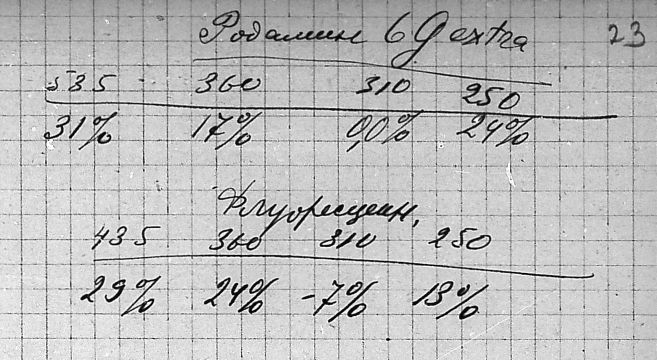 Родамин 6G extra 23
535 360 310 250
31% 17% 0,0% 24%
Флуоресцеин,
435 360 310 250
29% 24% -7% 13%